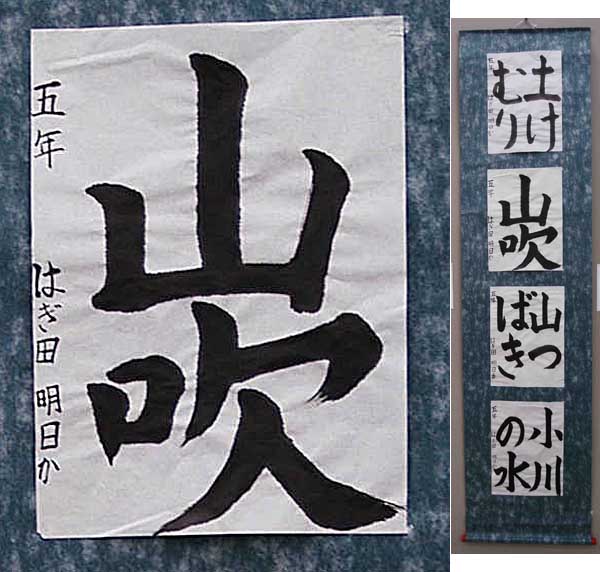 山吹
五年 はぎ田 明日か
土けむり
山吹
山つばき
小川の水